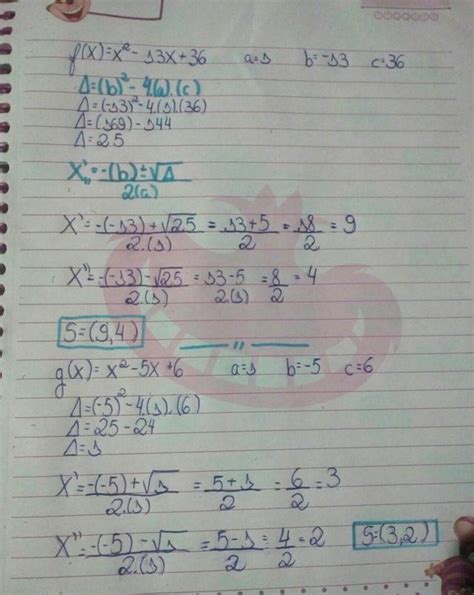 f(x)=x²-13x+36 a=1 b=-13 c=36
Δ=(b)²-4(a).(c)
Δ=(-13)²-4.(1).(36)
Δ=(169)-144
Δ=25
X' '' = -(b)±√Δ / 2(a)
X'= -(-13)+√25 / 2.(1) = 13+5 / 2 = 18 / 2 = 9
X''= -(-13)-√25 / 2.(1) = 13-5 / 2(1) = 8 / 2 = 4
S=(9,4)
g(x)=x²-5x+6 a=1 b=-5 c=6
Δ=(-5)²-4.(1).(6)
Δ=25-24
Δ=1
X'= -(-5)+√1 / 2.(1) = 5+1 / 2 = 6 / 2 = 3
X''= -(-5)-√1 / 2.(1) = 5-1 / 2 = 4 / 2 = 2 S=(3,2)